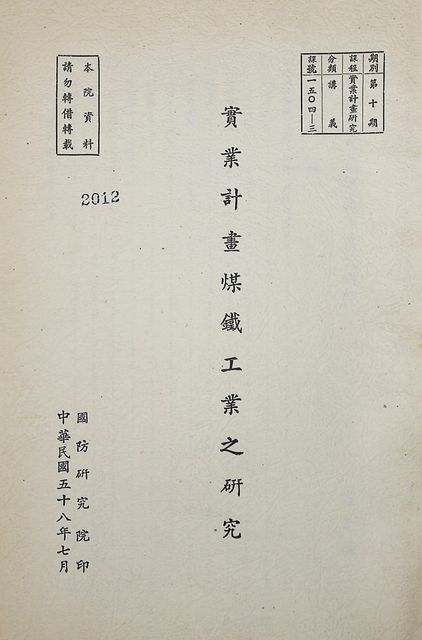 期別 第十期
課程 實業計畫研究
分類 講義
課號 一五〇四—三
實業計畫煤鐵工業之研究
本院資料
請勿轉借轉載
2012
國防研究院印
中華民國五十八年七月